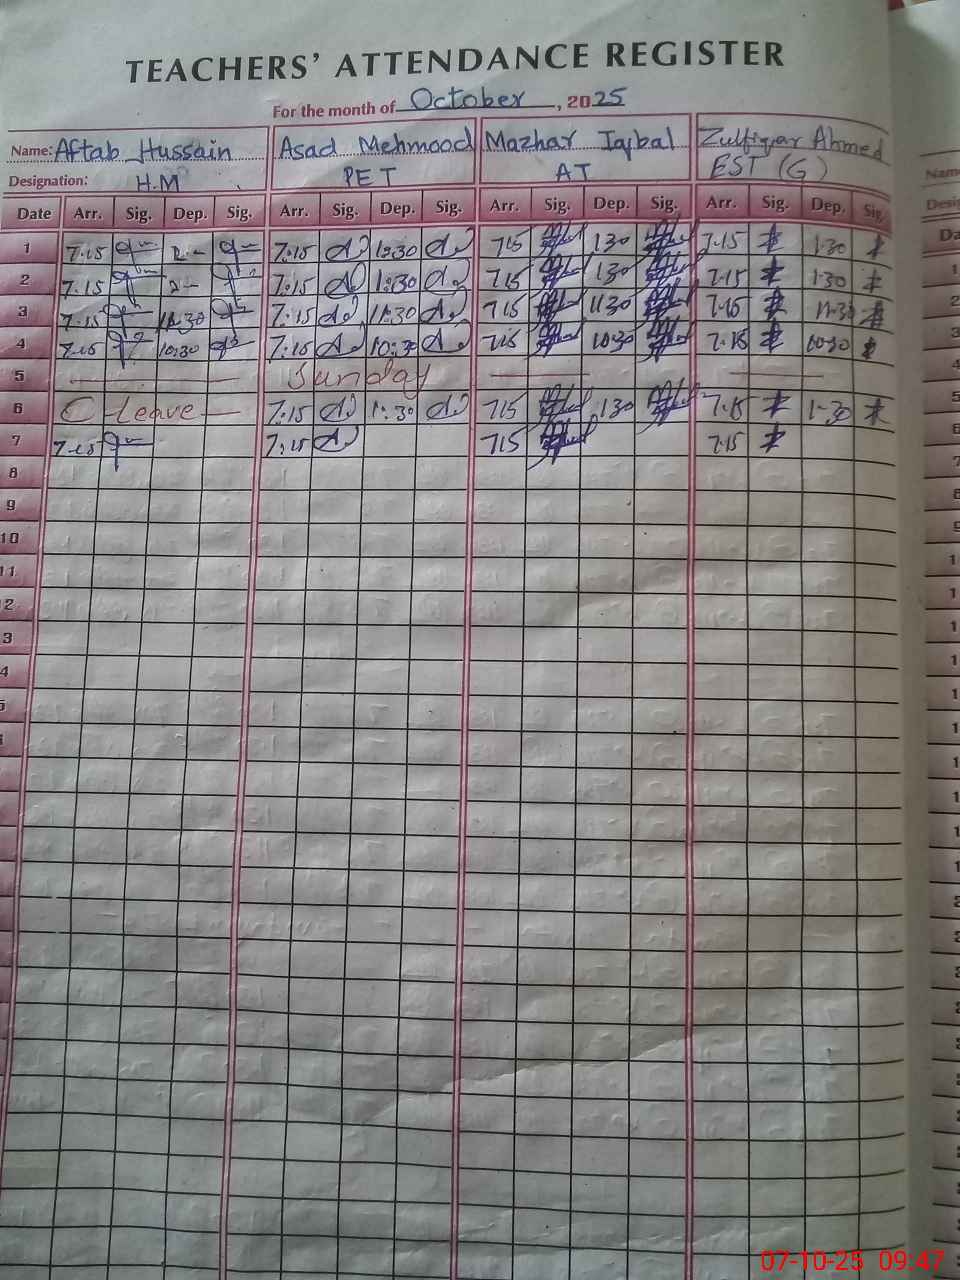 TEACHERS' ATTENDANCE REGISTER
For the month of October, 2025
Name: Aftab Hussain Asad Mehmood Mazhar Iqbal Zulfiqar Ahmed
Designation: H.M PET AT EST (G)
Date Arr. Sig. Dep. Sig. Arr. Sig. Dep. Sig. Arr. Sig. Dep. Sig. Arr. Sig. Dep. Sig.
1 7.15 7:15 1:30 715 130 7.15 1.30
2 7.15 7:15 1:30 715 130 7.15 1.30
3 7.15 11.30 7:15 11:30 715 1130 7.15 11.30
4 7.15 10:30 7:15 10:30 715 1030 7.15 10:30
5 Sunday
6 C-Leave 7:15 1:30 715 130 7.15 1.30
7 7.15 7:15 715 7.15
8
9
10
11
2
3
4
07-10-25 09:47